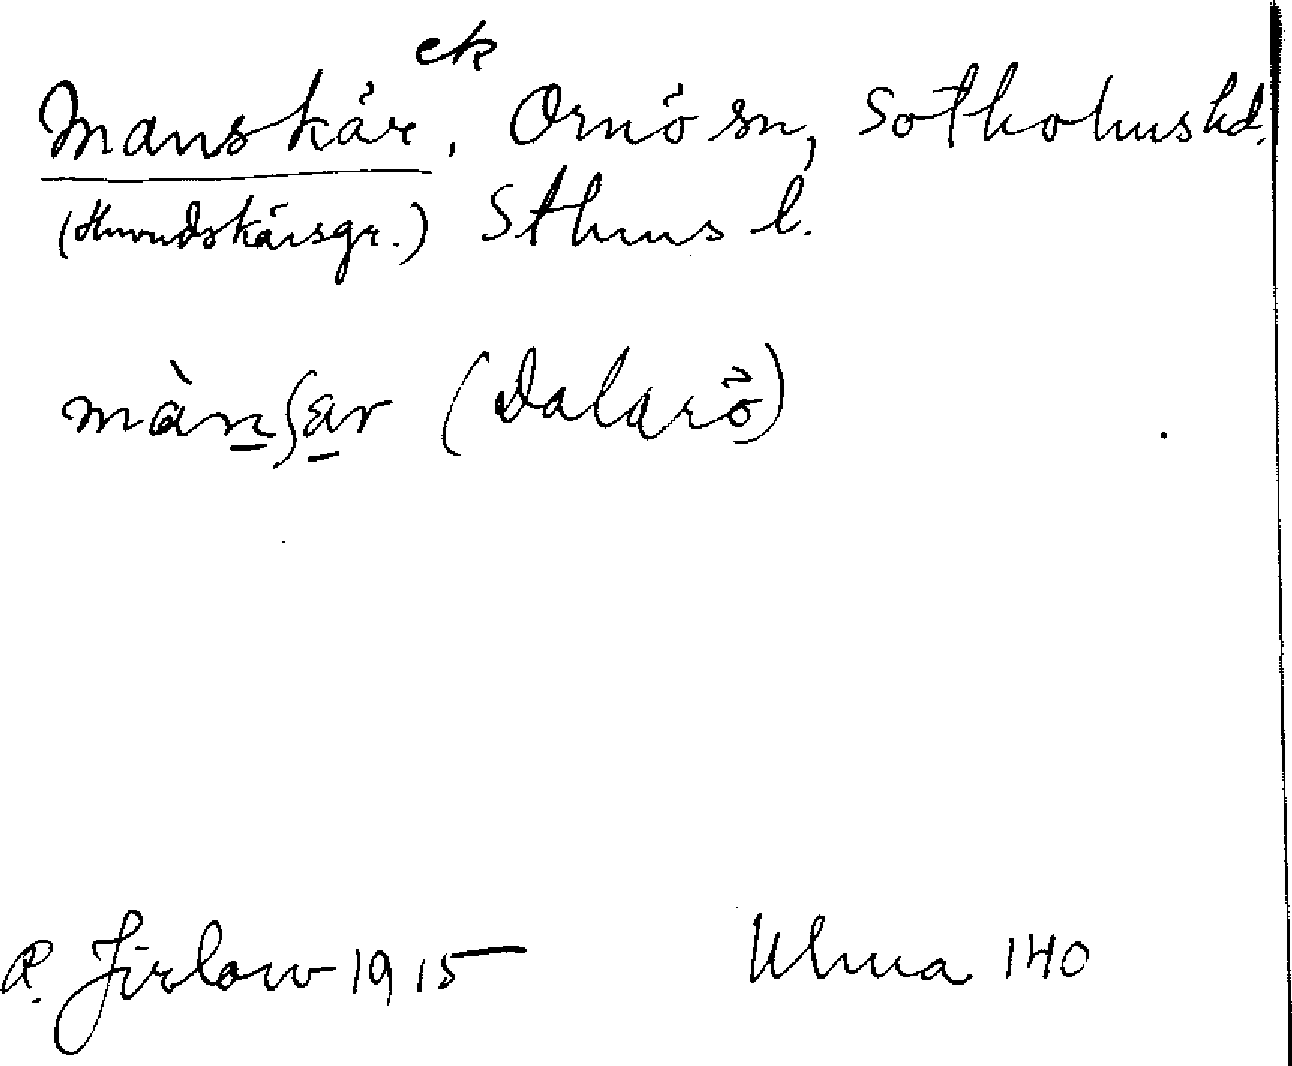 ek
Manskär, Ornö sn, Sotholms hd.
(Huvudskärsgr.) Sthms l.
mànʃar (Dalarö)
R. Jirlow 1915 Ulma 140